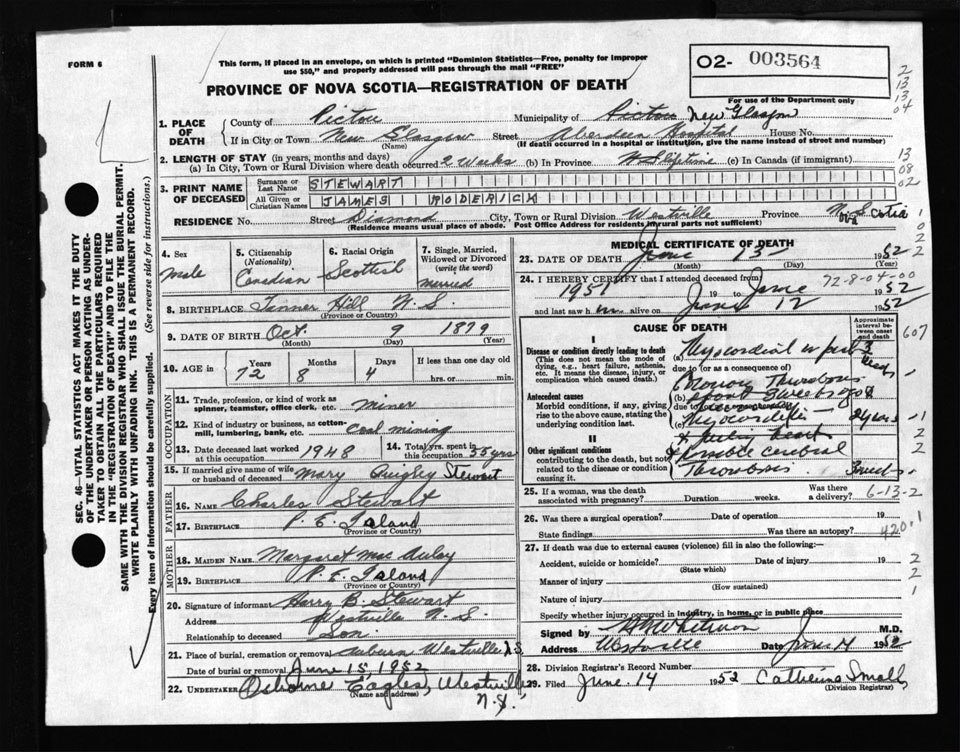 FORM 6
This form, if placed in an envelope, on which is printed "Dominion Statistics—Free, penalty for improper
use $50," and properly addressed will pass through the mail "FREE"
O2- 003564
PROVINCE OF NOVA SCOTIA—REGISTRATION OF DEATH
For use of the Department only
2
13
13
04
1. PLACE OF DEATH
County of Pictou Municipality of Pictou New Glasgow
If in City or Town New Glasgow Street Aberdeen Hospital House No.
(Name) (If death occurred in a hospital or institution, give the name instead of street and number)
2. LENGTH OF STAY (in years, months and days)
(a) In City, Town or Rural Division where death occurred 2 Weeks (b) In Province Lifetime (c) In Canada (if immigrant)
13
08
02
3. PRINT NAME OF DECEASED
Surname or Last Name STEWART
All Given or Christian Names JAMES RODERICK
RESIDENCE No. Street Diamond City, Town or Rural Division Westville Province N. Scotia
(Residence means usual place of abode. Post Office Address for residents in rural parts not sufficient)
4. Sex
male
5. Citizenship
(Nationality)
Canadian
6. Racial Origin
Scottish
7. Single, Married,
Widowed or Divorced
(write the word)
married
8. BIRTHPLACE Tanner Hill N.S.
(Province or Country)
9. DATE OF BIRTH Oct. 9 1879
(Month) (Day) (Year)
10. AGE in Years Months Days If less than one day old
72 8 4 hrs. or min.
OCCUPATION
11. Trade, profession, or kind of work as
spinner, teamster, office clerk, etc. miner
12. Kind of industry or business, as cotten-
mill, lumbering, bank, etc. Coal mining
13. Date deceased last worked
at this occupation 1948
14. Total yrs. spent in
this occupation 55 yrs
15. If married give name of wife
or husband of deceased Mary Quigley Stewart
FATHER
16. Name Charles Stewart
17. Birthplace P. E. Island
(Province or Country)
MOTHER
18. Maiden Name Margaret MacAulay
19. Birthplace P. E. Island
(Province or Country)
20. Signature of informant Harry B. Stewart
Address Westville N.S.
Relationship to deceased Son.
21. Place of burial, cremation or removal Auburn Westville N.S.
Date of burial or removal June 15 1952
22. UNDERTAKER Osborne Eagles, Westville
(Name and address) N.S.
MEDICAL CERTIFICATE OF DEATH
23. DATE OF DEATH June 13 1952
(Month) (Day) (Year)
24. I HEREBY CERTIFY that I attended deceased from 72-8-04-00
1951 19 to June 1952
and last saw him alive on June 12 1952
CAUSE OF DEATH
Approximate
interval between
onset
and death
607
I
Disease or condition directly leading to death
(This does not mean the mode of
dying, e.g., heart failure, asthenia,
etc. It means the disease, injury, or
complication which caused death.)
(a)
due to (or as a consequence of)
Antecedent causes
Morbid conditions, if any, giving
rise to the above cause, stating the
underlying condition last.
about 3 weeks ago
due to
2 years
II
Other significant conditions
contributing to the death, but not
related to the disease or condition
causing it.
& possible cerebral
Thrombosis 3 weeks
25. If a woman, was the death
associated with pregnancy? Duration weeks. Was there
a delivery? 6-13-2
26. Was there a surgical operation? Date of operation 19
State findings Was there an autopsy? 420.1
27. If death was due to external causes (violence) fill in also the following:—
Accident, suicide or homicide? Date of injury 19
(State which)
Manner of injury
(How sustained)
Nature of injury
Specify whether injury occurred in industry, in home, or in public place
Signed by M.D.
Address Westville Date June 14 1952
28. Division Registrar's Record Number
29. Filed June 14 1952 Catherine Small
(Division Registrar)
SEC. 46—VITAL STATISTICS ACT MAKES IT THE DUTY
OF THE UNDERTAKER OR PERSON ACTING AS UNDER-
TAKER TO OBTAIN ALL THE PARTICULARS REQUIRED
IN THE "REGISTRATION OF DEATH" AND TO FILE THE
SAME WITH THE DIVISION REGISTRAR WHO SHALL ISSUE THE BURIAL PERMIT.
WRITE PLAINLY WITH UNFADING INK. THIS IS A PERMANENT RECORD.
Every item of information should be carefully supplied. (See reverse side for instructions.)